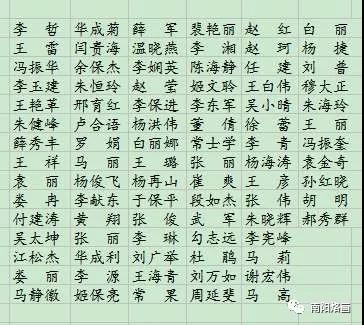 李 哲 华成菊 薛 军 裴艳丽 赵 红 白 丽
王 雷 闫贵海 温晓燕 李 湘 赵 珂 杨 捷
冯振华 余保杰 李娴英 陈海静 任 建 刘 普
李玉建 朱恒玲 赵 莹 姬文聆 王白伟 穆大正
王艳革 邢育红 李保进 李东军 吴小晴 朱海玲
朱健峰 卢合语 杨洪伟 董 倩 徐 蕾 王 丽
薛秀丰 罗 娟 白丽娜 常士学 李 青 冯振奎
王 祥 马 丽 王 璐 张 丽 杨海涛 袁金奇
袁 丽 杨俊飞 杨再山 崔 爽 王 彦 孙红晓
娄 冉 李献东 于保平 段如杰 张 伟 胡 明
付建涛 黄 翔 张 俊 武 军 朱晓辉 郝秀群
吴太坤 张 丽 李 琳 勾志远 李宪峰
江松杰 华成利 刘广举 杜 鹃 马 莉
娄 丽 李 源 王海青 刘万如 谢宏伟
马静徽 姬保亮 常 果 周廷斐 马 高
南阳烙画